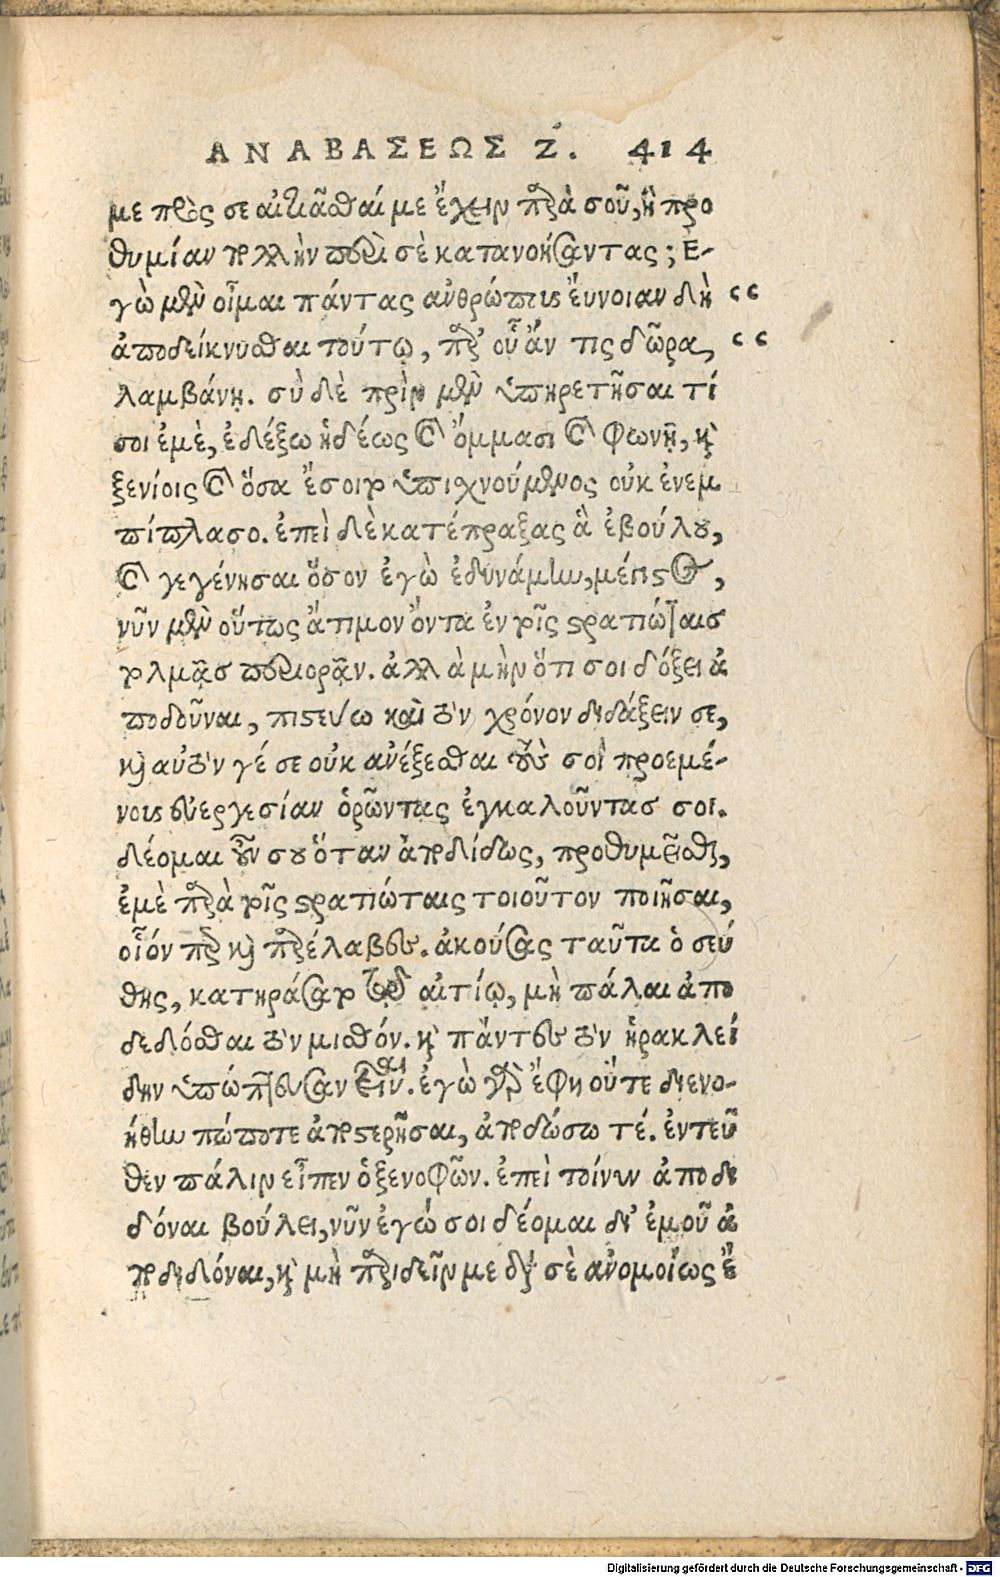 ΑΝΑΒΑΣΕΩΣ Ζ. 414
με πρὸς σε αἰτιᾶσθαί με ἔχειν παρὰ σοῦ, ἢ προ
θυμίαν πολλὴν περὶ σὲ κατανοήσαντας; Ε-
γὼ μὲν οἶμαι πάντας ἀνθρώπους ἔυνοιαν δεῖν
ἀποδείκνυσθαι τούτῳ, παρ' οὗ ἄν τις δῶρα
λαμβάνῃ. σὺ δὲ πρὶν μὲν ὑπηρετῆσαι τί
σοι ἐμὲ, ἐδέξω ἡδέως καὶ ὄμμασι καὶ φωνῇ, καὶ
ξενίοις καὶ ὅσα ἔσοιτο ὑπισχνούμενος οὐκ ἐνεμ
πίπλασο. ἐπεὶ δὲ κατέπραξας ἃ ἐβούλου,
καὶ γεγένησαι ὅσον ἐγὼ ἐδυνάμην, μέγιστος,
νῦν μὲν οὕτως ἄτιμον ὄντα ἐν τοῖς στρατιώταις
τολμᾷς περιορᾷν. ἀλλὰ μὴν ὅτι σοι δόξει ἀ
ποδοῦναι, πιστεύω καὶ τὸν χρόνον διδάξειν σε,
καὶ αὐτόν γέ σε οὐκ ἀνέξεσθαι τούς σοὶ προεμέ-
νους εὐεργεσίαν ὁρῶντας ἐγκαλοῦντας σοι.
δέομαι οὖν σου ὅταν ἀποδίδως, προθυμεῖσθαι,
ἐμὲ παρὰ τοῖς στρατιώταις τοιοῦτον ποιῆσαι,
οἷόν περ καὶ παρέλαβες. ἀκούσας ταῦτα ὁ σεύ
θης, κατηράσατο τῷ αἰτίῳ, μὴ πάλαι ἀπο
δεδόσθαι τὸν μισθόν. καὶ πάντες τὸν ἡρακλεί
δην ὑπώπτευσαν εἶναι. ἐγὼ γὰρ ἔφη οὔτε διενο-
ήθην πώποτε ἀποστερῆσαι, ἀποδώσω τέ. ἐντεῦ
θεν πάλιν εἶπεν ὁ ξενοφῶν. ἐπεὶ τοίνυν ἀποδι
δόναι βούλει, νῦν ἐγώ σοι δέομαι δι' ἐμοῦ ἀ
ποδιδόναι, καὶ μὴ περιιδεῖν με διὰ σὲ ἀνομοίως ἔ
Digitalisierung gefördert durch die Deutsche Forschungsgemeinschaft - DFG